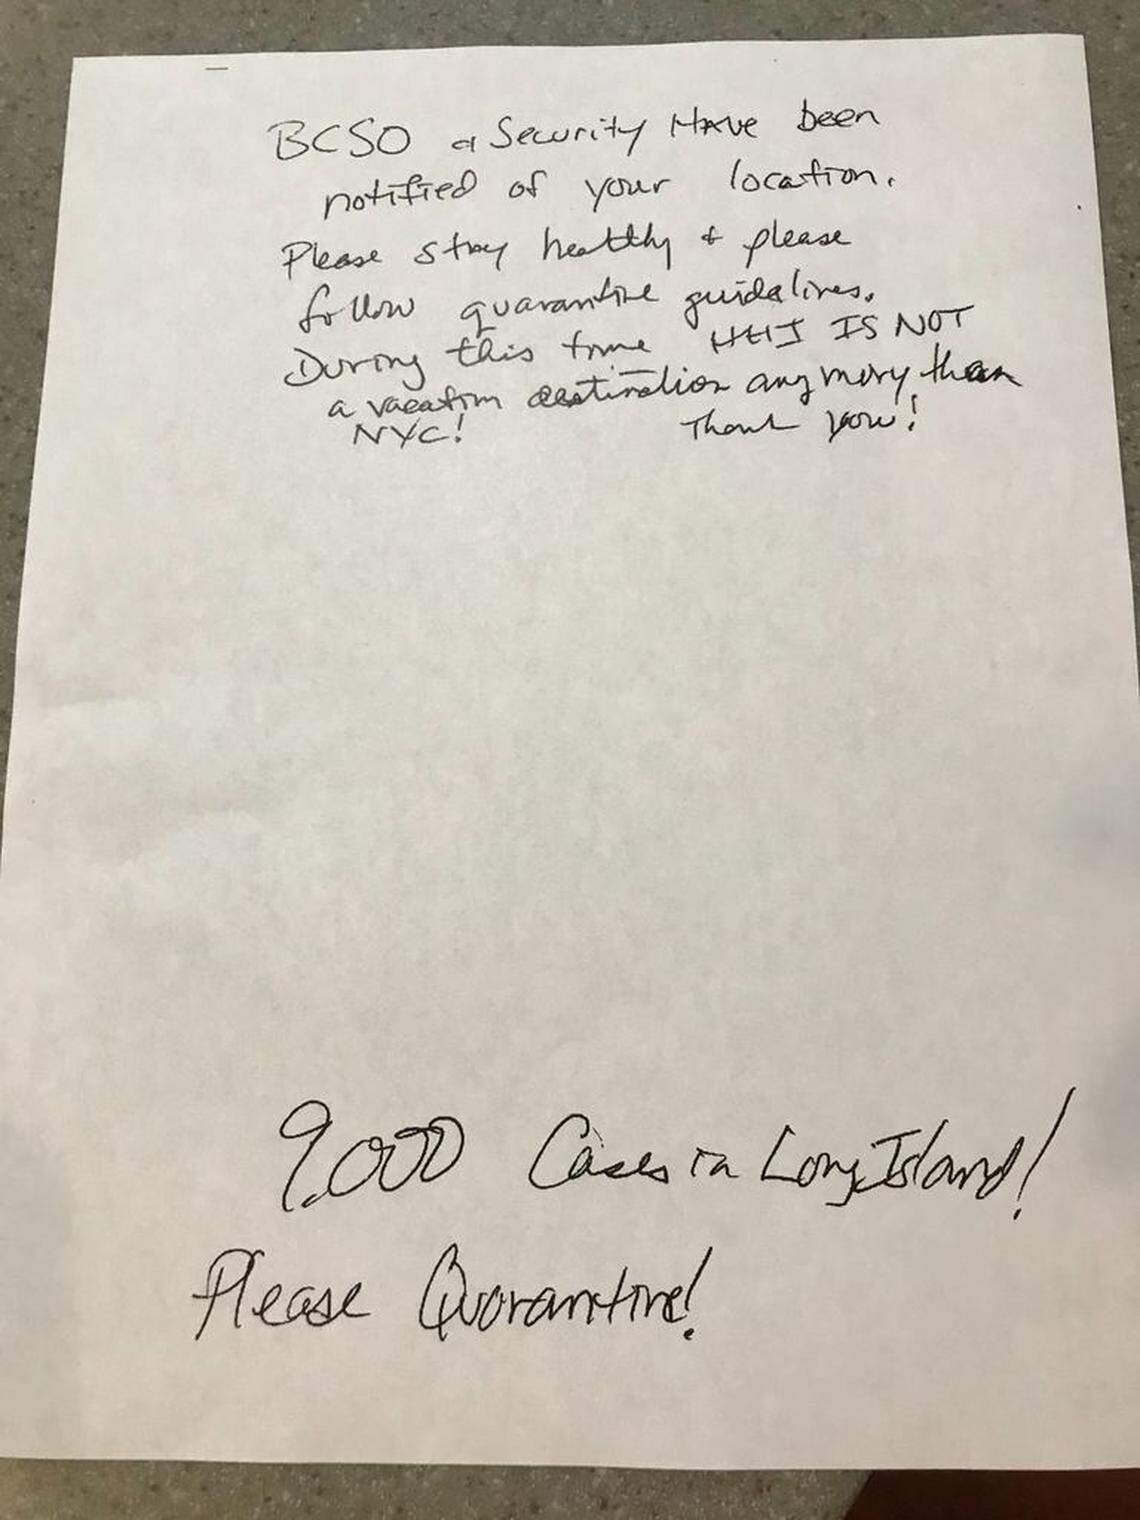 BCSO & Security Have been
notified of your location.
Please stay healthy & please
follow quarantine guidelines.
During this time HHI IS NOT
a vacation destination any more than
NYC! Thank you!
9,000 Cases in Long Island!
Please Quarantine!